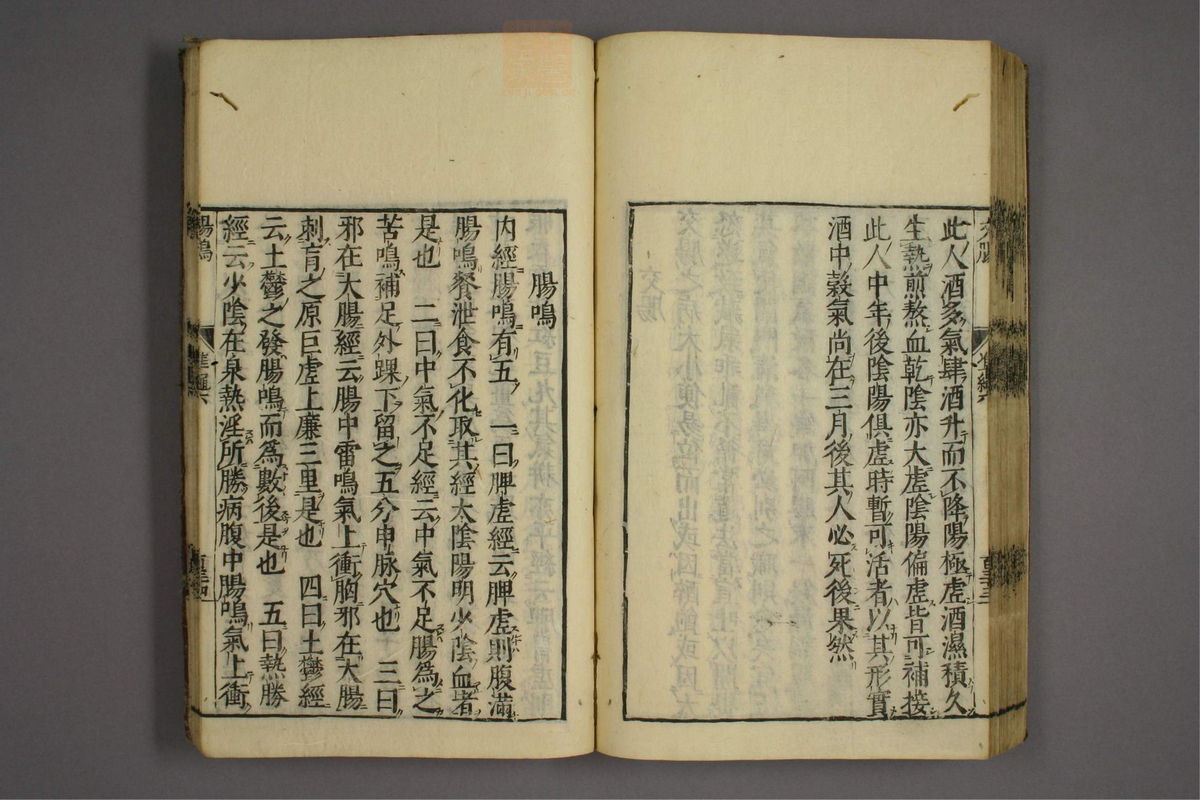 此人酒多氣肆酒升而不降陽極虛酒濕積久
生熱煎熬血乾陰亦大虛陰陽偏虛皆可補接
此人中年後陰陽俱虛時暫可活者以其形實
酒中穀氣尚在三月後其人必死後果然
腸鳴
內經腸鳴有五一曰脾虛經云脾虛則腹滿
腸鳴飧泄食不化取其經太陰陽明少陰血者
是也 二曰中氣不足經云中氣不足腸爲之
苦鳴補足外踝下留之五分申脉穴也 三曰
邪在大腸經云腸中雷鳴氣上衝胸邪在大腸
刺肓之原巨虛上廉三里是也 四曰土鬱經
云土鬱之發腸鳴而爲數後是也 五曰熱勝
經云少陰在泉熱淫所勝病腹中腸鳴氣上衝
腸鳴